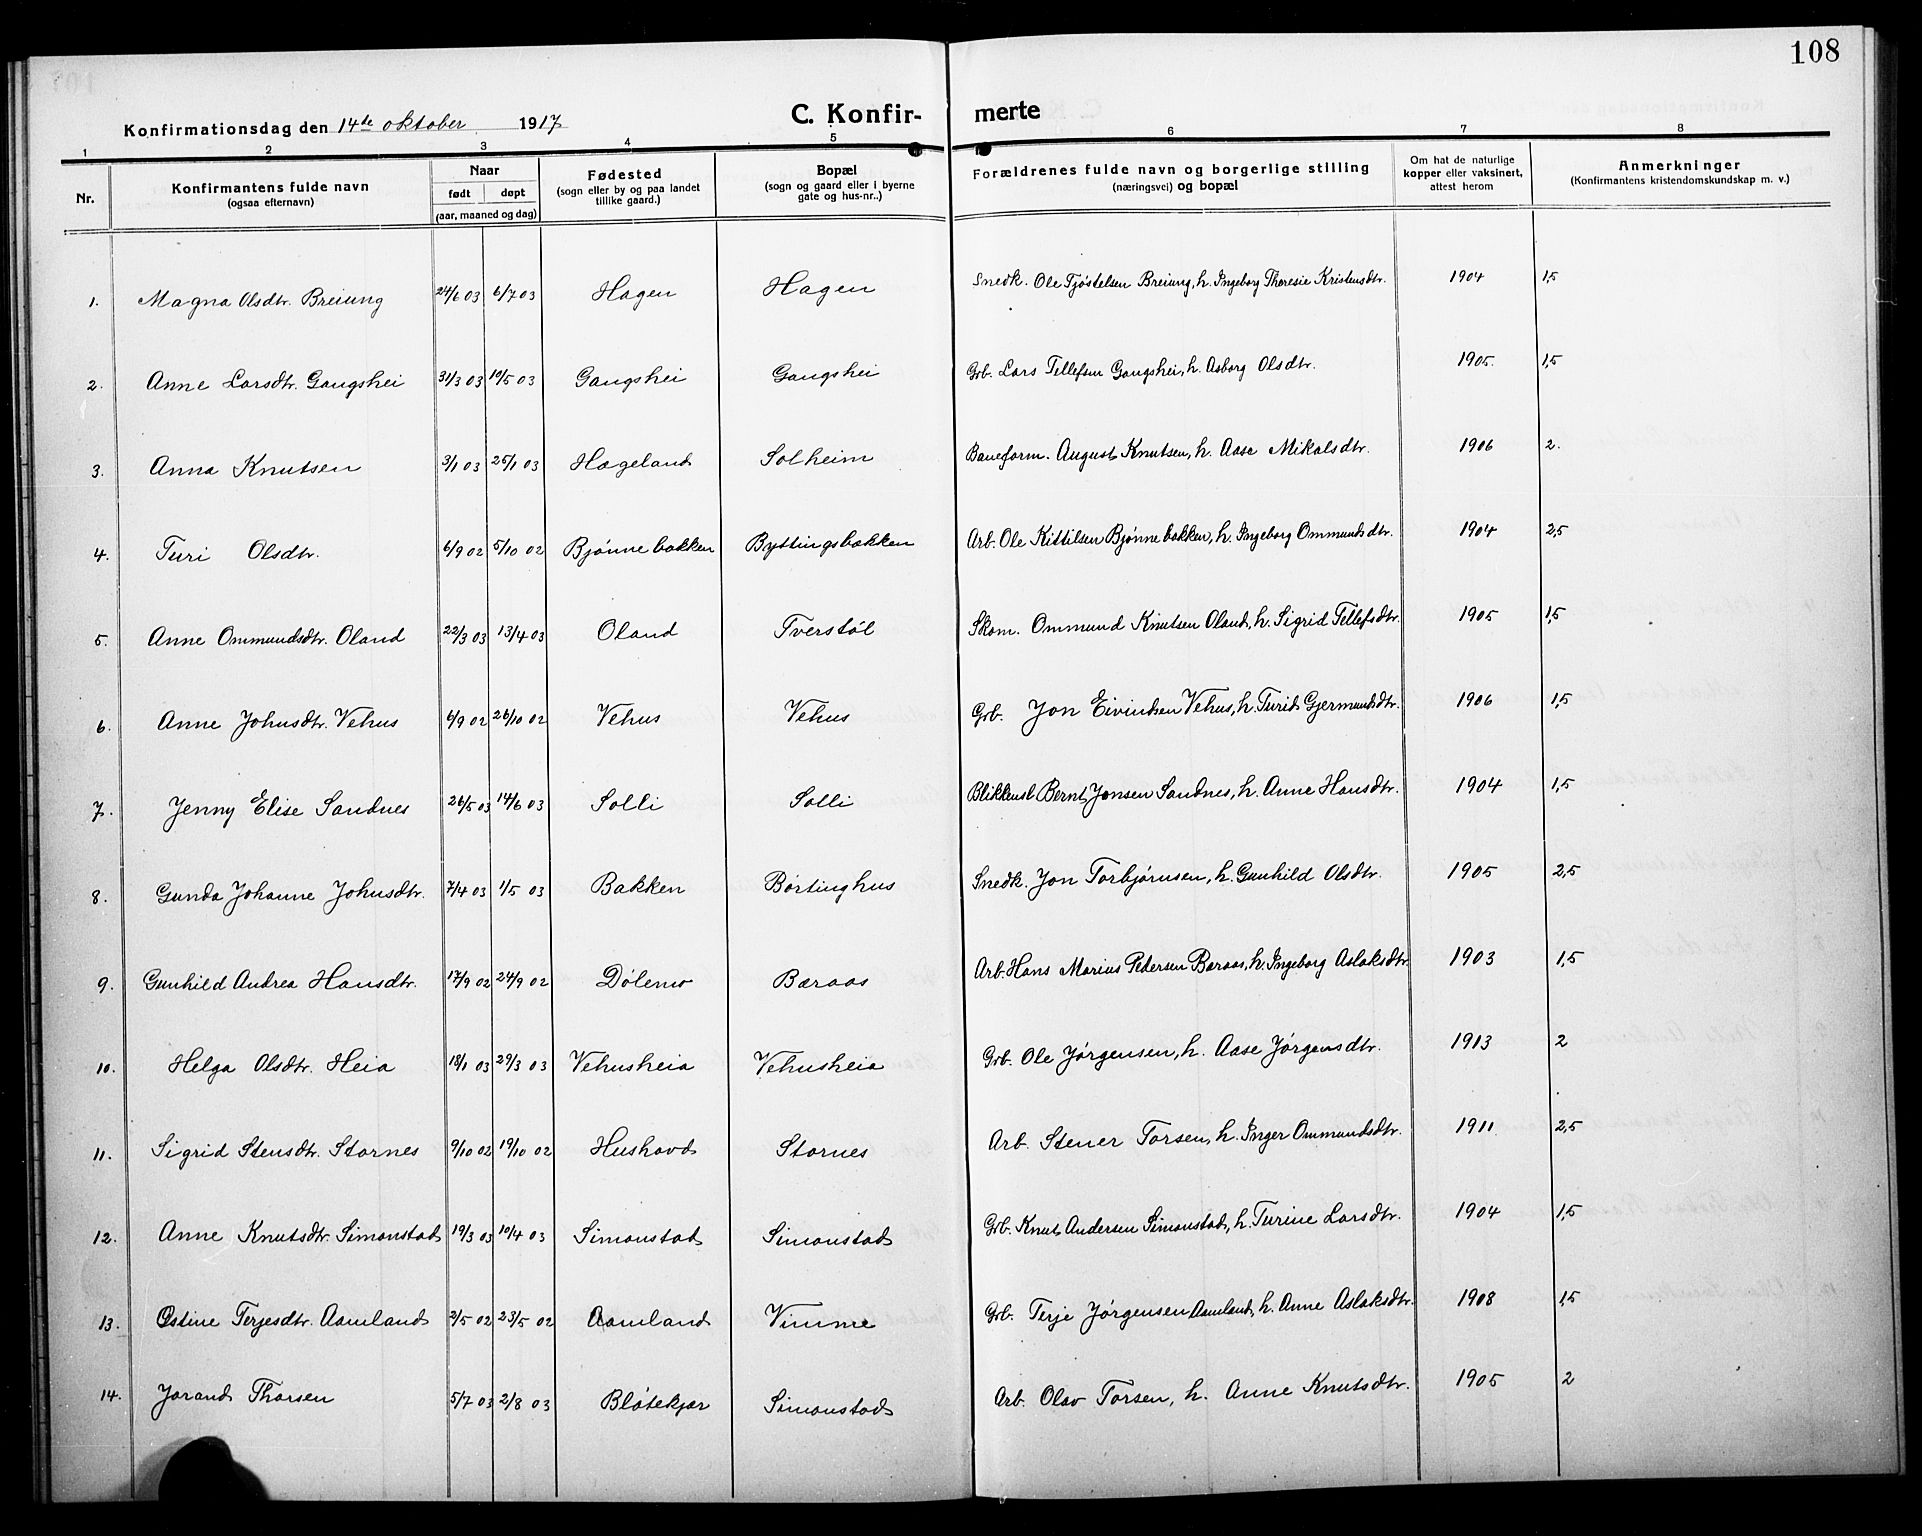 108
Konfirmationsdag den 14de oktober 1917 C. Konfir- merte
1 2 3 4 5 6 7 8
Nr. Konfirmantens fulde navn (ogsaa efternavn) Naar født døpt (aar, maaned og dag) Fødested (sogn eller by og paa landet tillike gaard.) Bopæl (sogn og gaard eller i byerne gate og hus-nr..) Forældrenes fulde navn og borgerlige stilling (næringsvei) og bopæl Om hat de naturlige kopper eller vaksinert, attest herom Anmerkninger (Konfirmantens kristendomskundskap m. v.)
1. Magna Olsdtr. Breiung 24/6 03 6/7 03 Hagen Hagen Snedk. Ole Tjøstelsen Breiung, h. Ingeborg Theresie Kristensdtr. 1904 1,5
2. Anne Larsdtr. Gangshei 31/3 03 10/5 03 Gangshei Gangshei Grb. Lars Tellefsen Gangshei, h. Asborg Olsdtr. 1905. 1,5
3. Anna Knutsen 3/1 03 25/1 03 Hægeland Solheim Baneform. August Knutsen, h. Aase Mikalsdtr. 1906 2.
4. Turi Olsdtr. 6/9 02 5/10 02 Bjønnebakken Byttingsbakken Arb. Ole Kittilsen Bjønnebakken, h. Ingeborg Ommundsdtr. 1904 2,5
5. Anne Ommundsdtr. Oland 22/3 03 13/4 03 Oland Tverstøl Skom. Ommund Knutsen Oland, h. Sigrid Tellefsdtr. 1905 1,5
6. Anne Johnsdtr. Vehus 6/9 02 26/10 02 Vehus Vehus Grb. Jon Eivindsen Vehus, h. Turid Gjermundsdtr. 1906 1,5
7. Jenny Elise Sandnes 26/5 03 14/6 03 Solli Solli Blikkensl. Bernt Jonsen Sandnes, h. Anne Hansdtr. 1904 1,5
8. Gunda Johanne Johnsdtr. 7/4 03 1/5 03 Bakken Børtinghus Snedk. Jon Torbjørnsen, h. Gunhild Olsdtr. 1905 2,5
9. Gunhild Andrea Hansdtr. 17/9 02 24/9 02 Dølemo Baraas Arb. Hans Marius Pedersen Baraas, h. Ingeborg Aslaksdtr. 1903 1,5
10. Helga Olsdtr. Heia 18/1 03 29/3 03 Vehusheia Vehusheia Grb. Ole Jørgensen, h. Aase Jørgensdtr. 1913 2
11. Sigrid Stensdtr. Stornes 9/10 02 19/10 02 Hushovd Stornes Arb. Stener Torsen, h. Inger Ommundsdtr. 1911 2,5
12. Anne Knutsdtr. Simonstad 19/3 03 10/4 03 Simonstad Simonstad Grb. Knut Andersen Simonstad, h. Turine Larsdtr. 1904 1,5
13. Ostine Terjesdtr. Aamland 2/5 02 23/5 02 Aamland Vimme Grb. Terje Jørgensen Aamland, h. Anne Aslaksdtr. 1908 1,5
14. Jorand Thorsen 5/7 03 2/8 03 Bløtekjær Simonstad Arb. Olav Torsen, h. Anne Knutsdtr. 1905 2